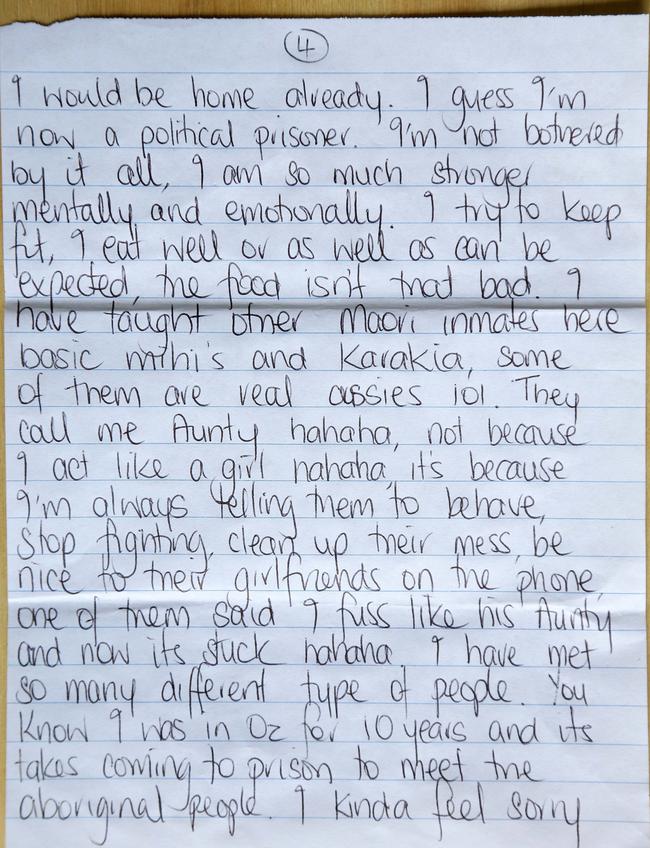 4
I would be home already. I guess I'm
now a political prisoner. I'm not bothered
by it all, I am so much stronger
mentally and emotionally. I try to keep
fit, I eat well or as well as can be
expected, the food isn't that bad. I
have taught other Maori inmates here
basic mihi's and Karakia, some
of them are real aussies lol. They
call me Aunty hahaha, not because
I act like a girl hahaha, it's because
I'm always telling them to behave,
stop fighting, clean up their mess, be
nice to their girlfriends on the phone,
one of them said I fuss like his Aunty
and now its stuck hahaha I have met
so many different type of people. You
know I was in Oz for 10 years and its
takes coming to prison to meet the
aboriginal people. I kinda feel sorry